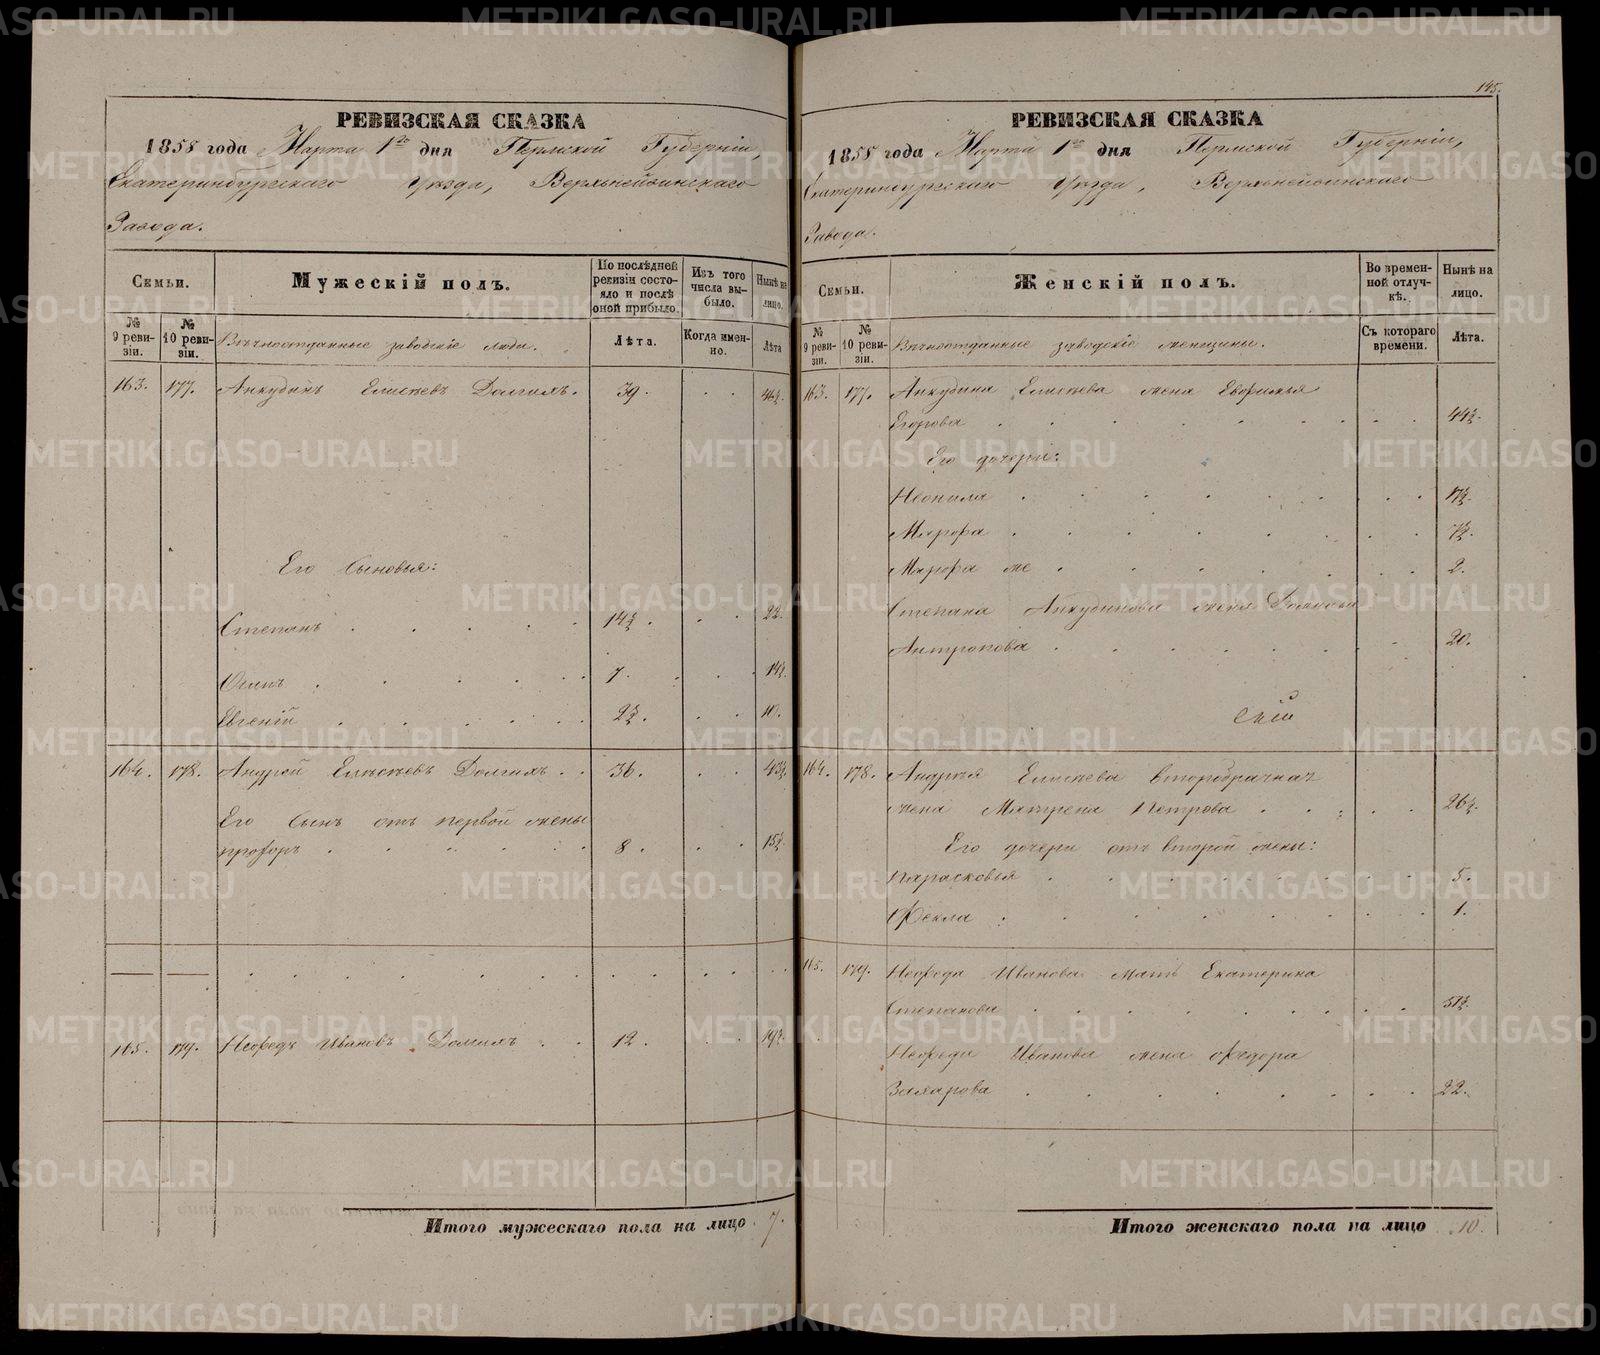 РЕВИЗСКАЯ СКАЗКА
1858 года Марта 1го дня Пермской Губерніи,
Екатеринбургскаго Уѣзда, Верхънейвинскаго
Завода.
Семьи.
Мужескій полъ.
По послѣдней ревизіи состояло и послѣ оной прибыло.
Изъ того числа выбыло.
Нынѣ на лицо.
№ 9 ревизіи.
№ 10 ревизіи.
Вѣчноотданные заводскіе люди.
Лѣта.
Когда именно.
Лѣта
163. 177. Анкудинъ Елисѣевъ Долгихъ. 39.
Его Сыновья:
Степанъ 14½. 22.
Осипъ 7. 14½.
Евгеній 2½. 10.
164. 178. Андрей Елисѣевъ Долгихъ 36. 43½.
Его Сынъ отъ первой жены
Прохоръ 8. 15½.
165. 179. Нефедъ Ивановъ Долгихъ 12. 19½.
Итого мужескаго пола на лицо 7.
145.
РЕВИЗСКАЯ СКАЗКА
1858 года Марта 1го дня Пермской Губерніи,
Екатеринбургскаго Уѣзда, Верхънейвинскаго
Завода.
Семьи.
Женскій полъ.
Во временной отлучкѣ.
Нынѣ на лицо.
№ 9 ревизіи.
№ 10 ревизіи.
Вѣчноотданные заводскіе женщины.
Съ котораго времени.
Лѣта.
163. 177. Анкудина Елисѣева жена Евфимья
Егорова 44½.
Его дочери:
Неонила 17½.
Марфа 7½.
Марфа же 2.
Степана Анкудинова жена
Антропова 20.
164. 178. Андрея Елисѣева второбрачная
жена Матрена Петрова 26½.
Его дочери отъ второй жены:
Парасковья 5.
Фекла 1.
165. 179. Нефеда Иванова мать Екатерина
Степанова 57½.
Нефеда Иванова жена Федора
Захарова 22.
Итого женскаго пола на лицо 10.
METRIKI.GASO-URAL.RU